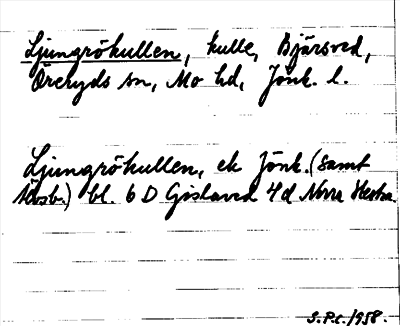 Ljungrökullen, kulle, Bjärsved,
Öreryds sn, Mo hd, Jönk. l.
Ljungrökullen, ek Jönk. (samt
Älvsb.) bl. 6 D Gislaved 4d Norra Hestra
S.P.C. 1958.